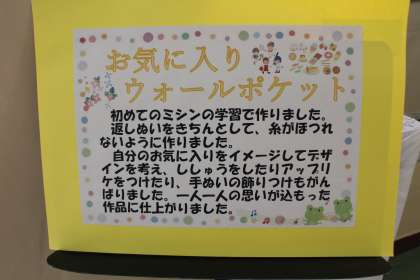 お気に入り
ウォールポケット
初めてのミシンの学習で作りました。
返しぬいをきちんとして、糸がほつれ
ないように作りました。
自分のお気に入りをイメージしてデザ
インを考え、ししゅうをしたりアップリ
ケをつけたり、手ぬいの飾りつけもがん
ばりました。一人一人の思いが込もった
作品に仕上がりました。